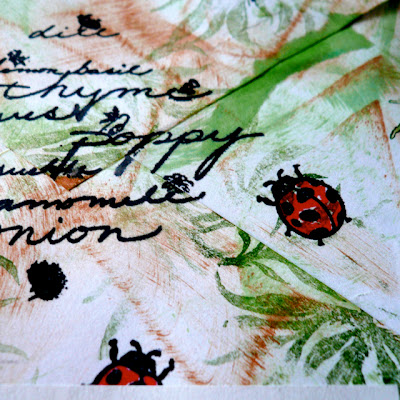 dill
lemon basil
thyme
Poppy
amomile
onion